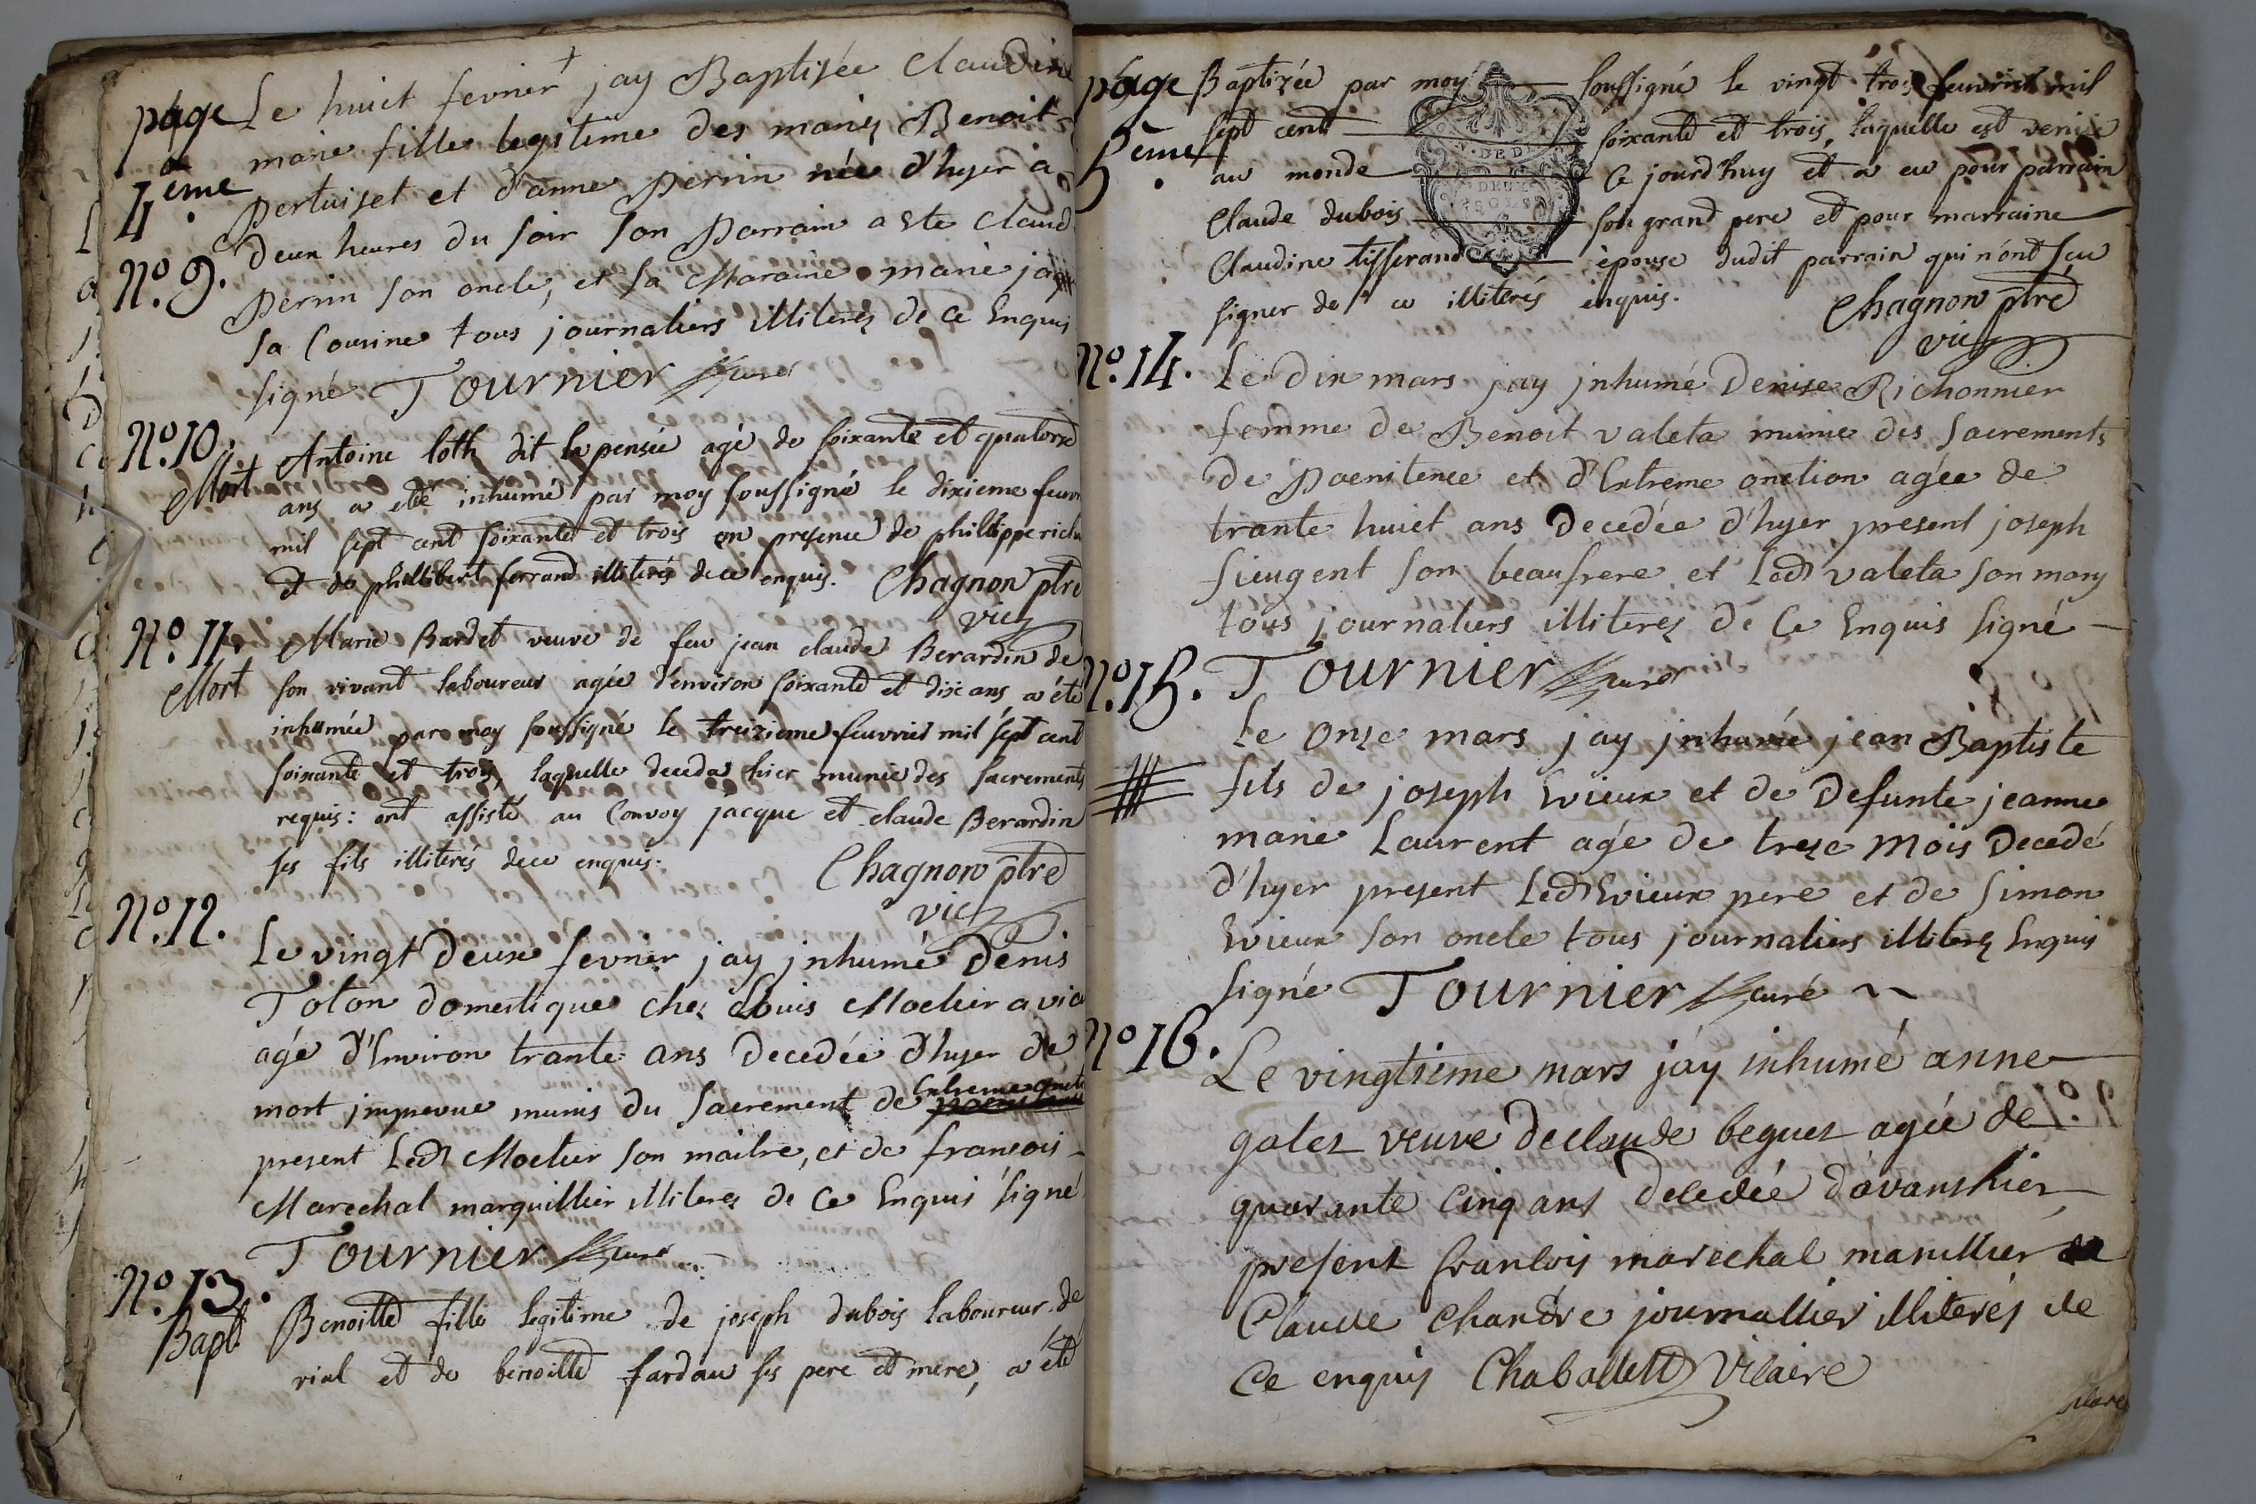 page
4ème
Le huict fevrier jay Baptisée Claudine
marie fille legitime des mariez Benoit
Pertuiset et d'anne Perrin née d'hyer a
deux heures du soir son Parrain a este Claud
Perrin son oncle, et sa Maraine marie
sa Cousine tous journaliers illiterez de ce Enquis
signé Tournier curé
N°. 9.
N°. 10.
Mort
Antoine loth dit la pensée agé de soixante et quatorze
ans a eté inhumé par moy soussigné le dixieme feuvr
mil sept cent soixante et trois en presence de philippe
et de philibert ferrand illiterés de ce enquis. Chagnon ptre
vic
N°. 11.
Mort
Marie Bardet veuve de feu jean claude Berardin de
son vivant laboureur agée d'environ soixante et dix ans a été
inhumée par moy soussigné le treizieme feuvrier mil sept cent
soixante et trois, laquelle deceda hier munie des sacrements
requis: ont assisté au Convoy jacque et claude Berardin
ses fils illiterés de ce enquis: Chagnon ptre
vic
N°. 12.
Le vingt deux fevrier jay jnhumé Denis
Tolon domestique chez Louis Moelier a
agé d'Environ trante ans Decedée d'hyer de
mort jmprevue munis du Sacrement de Extreme
present Ledt Moelier son maitre, et de francois
Marechal marguillier illiterez de Ce Enquis signé
Tournier curé
N°. 13.
Bapt.
Benoitte fille legitime de joseph dubois laboureur de
rial et de benoitte fardau ses pere et mere, a été
page
5ème
Baptizée par moy soussigné le vingt trois feuvrier mil
sept cent soixante et trois, laquelle est venüe
au monde Ce jourd'huy et a eu pour parrain
Claude dubois son grand pere et pour marraine
Claudine tisserand épouse dudit parrain qui n'ont sçu
signer de ce illiterés enquis. Chagnon ptre
vic
N°. 14.
Le Dix mars jay jnhumé Denise Richonnier
femme de Benoit valeta munie des Sacrements
de Poenitence et d'Extreme onction agée de
trante huict ans Decedée d'hyer present joseph
fieugent son beaufrere et Ledt valeta son mary
tous journaliers illiterez de Ce Enquis signé
Tournier curé
N°. 15.
Le onze mars jay jnhumé jean Baptiste
fils de joseph Evieux et de Defunte jeanne
marie Laurent agé de treze mois Decedé
d'hyer present Ledt Evieux pere et de Simon
Evieux son oncle tous journaliers illiterez Enquis
signé Tournier curé
N°. 16.
Le vingtieme mars j'ay inhumé anne
galet veuve de claude beguet agée de
quarante cinq ans decedée d'avant hier
present francois marechal manillier
Claude Chandre journallier illiterés de
Ce enquis Chaballett Vicaire